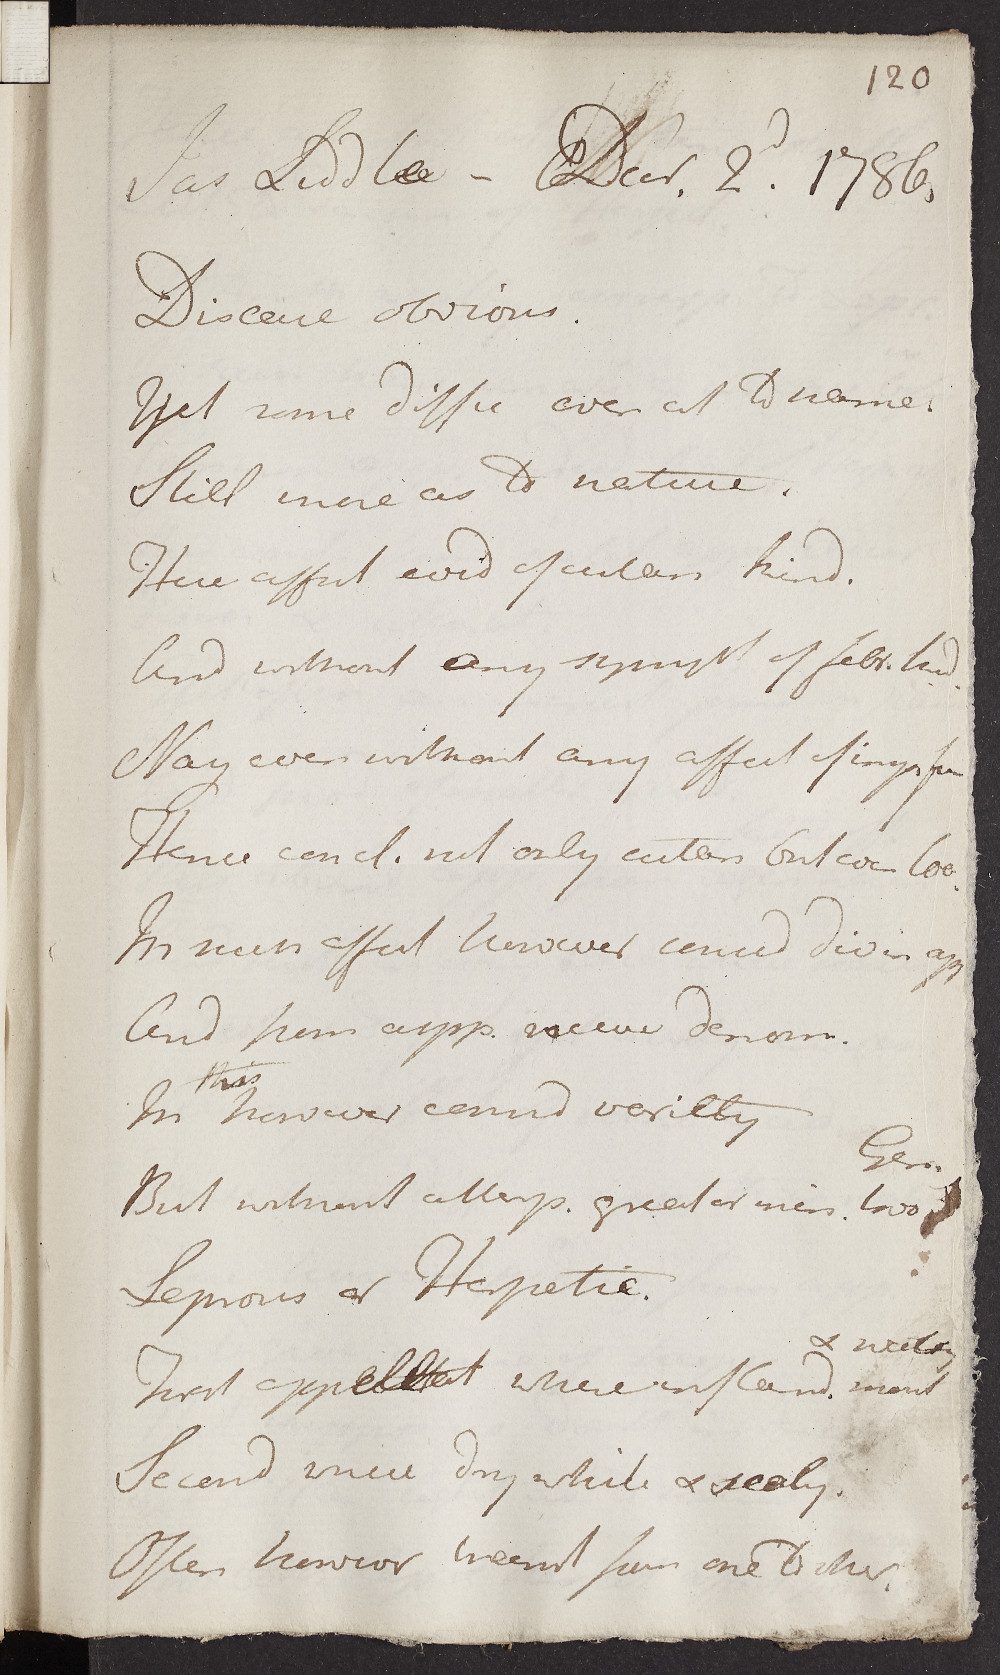 120
Jas Liddle - Decr. 2d. 1786.
Disease obvious.
Yet some diffce even as to name.
Still more as to nature.
Here affect evid of cutans kind.
And without any sympt of febr. kind.
Nay even without any affect of
Hence concl. not only cutans but even loc.
In such affect however consid divers app
And from app. receive denom.
In this however consid varietty
But without attemp. greater min.
Gen. two
Leprous or Herpetic.
First app where inflamd. moist
& watery
Second where dry white & scaly.
Often however transit from one to other.